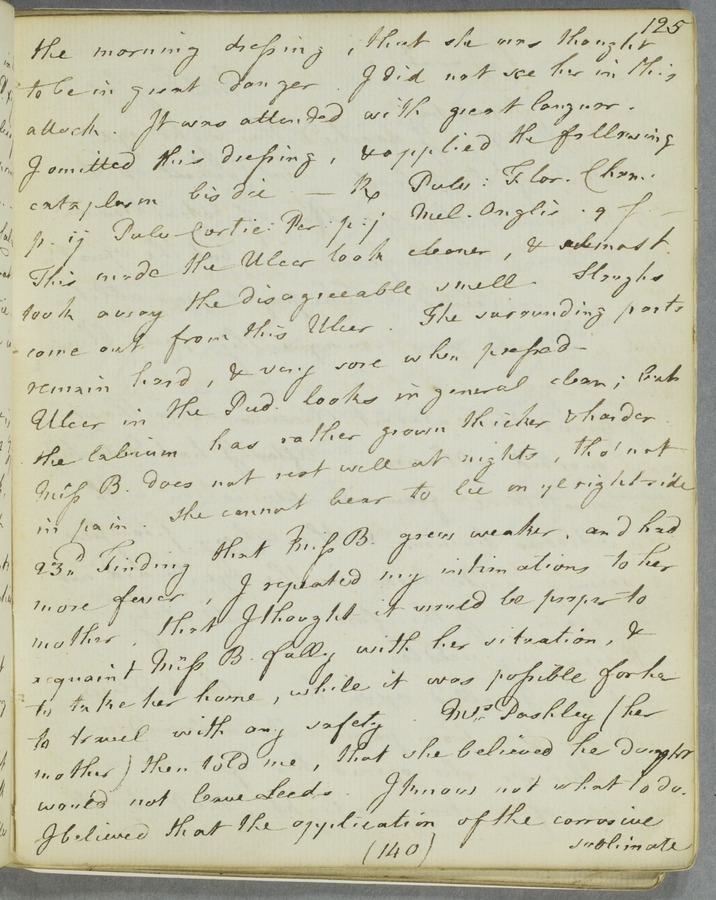 125
the morning dressing, that she was thought
to be in great danger. I did not see her in this
attack. It was attended with great languor.
I omitted this dressing, & applied the following
cataplasm bis die — Rx Pulv: Flor. Cham:
p. ij Pulv Cortic: Per: p: j Mel. Anglic. q f.
This made the Ulcer look cleaner, & almost
took away the disagreeable smell. Sloughs
come out from this Ulcer. The surrounding parts
remain hard, & very sore when pressed—
Ulcer in the Pud. looks in general clean; but
the labium has rather grown thicker & harder.
Miss B. does not rest well at nights, tho' not
in pain. She cannot bear to lie on ye right side
23rd Finding that Miss B. grew weaker, and had
more fever, I repeated my intimations to her
mother, that I thought it would be proper to
acquaint Miss B. fully with her situation, &
to take her home, while it was possible for her
to travel with any safety. Mrs. Pashley (her
mother) then told me, that she believed her daughter
would not leave Leeds. I know not what to do.
I believed that the application of the corrosive
(140) sublimate